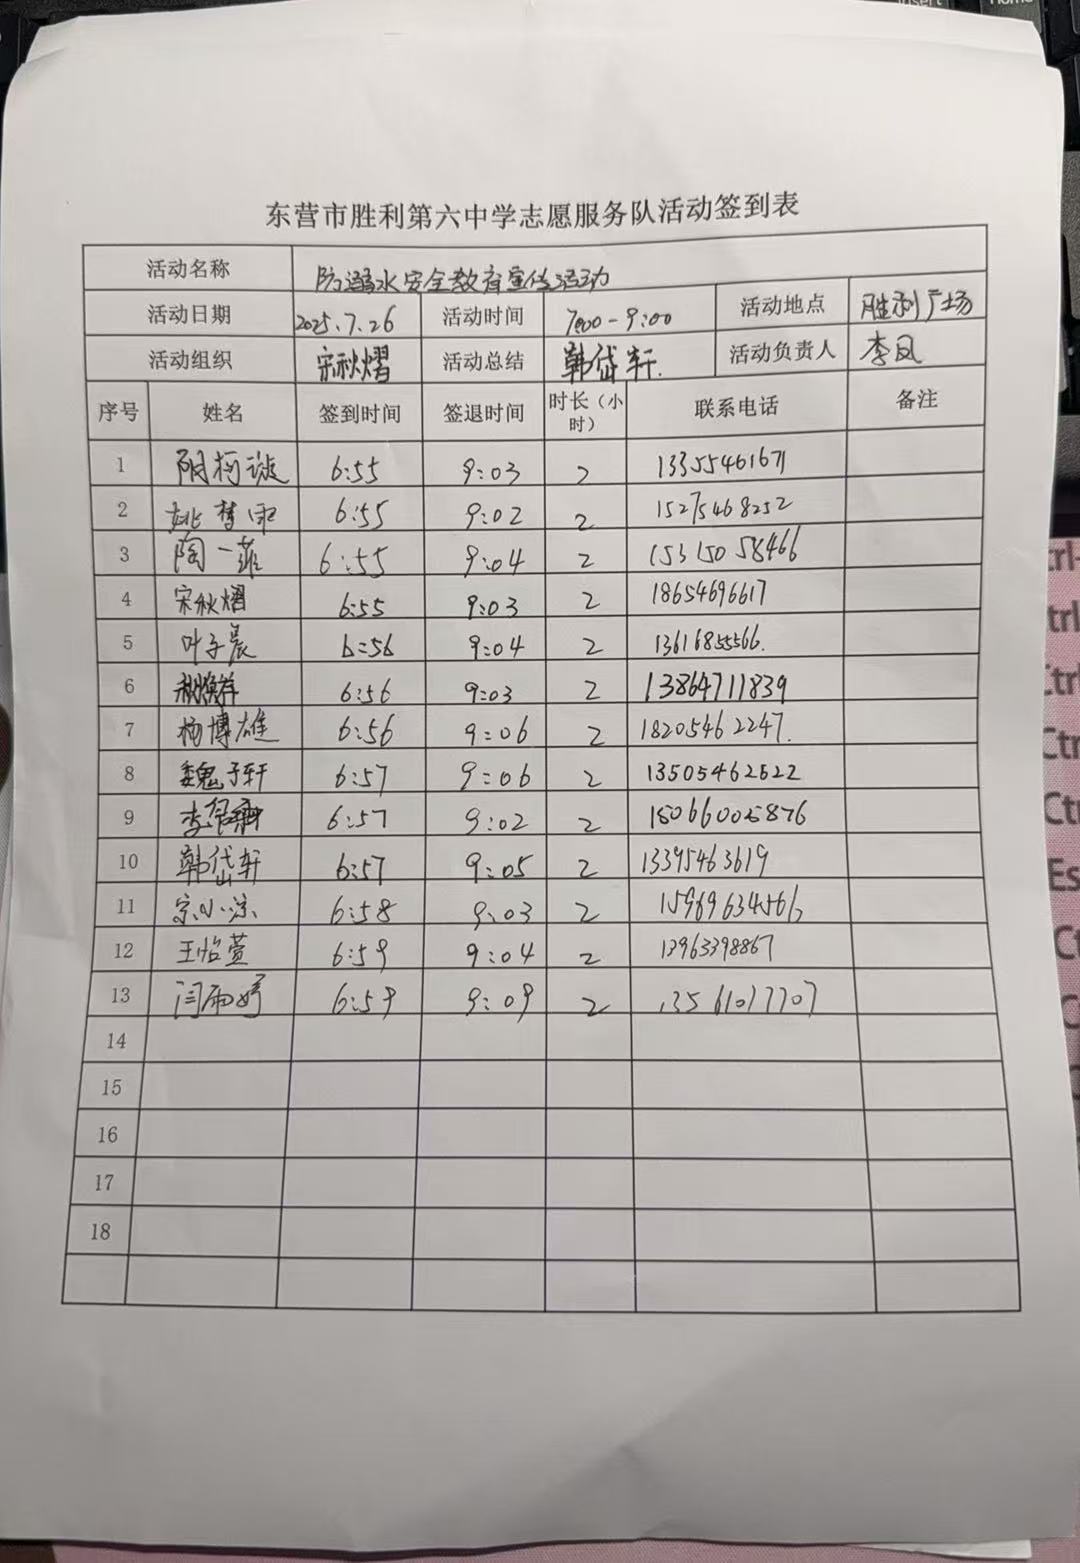 Insert Home
东营市胜利第六中学志愿服务队活动签到表
活动名称 防溺水安全教育宣传活动
活动日期 2025.7.26 活动时间 7:00-9:00 活动地点 胜利广场
活动组织 宋秋熠 活动总结 韩岱轩. 活动负责人 李凤
序号 姓名 签到时间 签退时间 时长（小时） 联系电话 备注
1 阴柯漩 6:55 9:03 2 13355461671
2 姚梦雨 6:55 9:02 2 15275468252
3 陶一菲 6:55 9:04 2 15315058466
4 宋秋熠 6:55 9:03 2 18654696617
5 叶子晨 6:56 9:04 2 13616855566.
6 6:56 9:03 2 13864711839
7 杨博雄 6:56 9:06 2 18205462247.
8 魏子轩 6:57 9:06 2 13505462522
9 6:57 9:02 2
10 韩岱轩 6:57 9:05 2 13395463619
11 6:58 9:03 2
12 王怡萱 6:59 9:04 2 13963398867
13 闫雨婷 6:59 9:09 2 13561017707
14
15
16
17
18